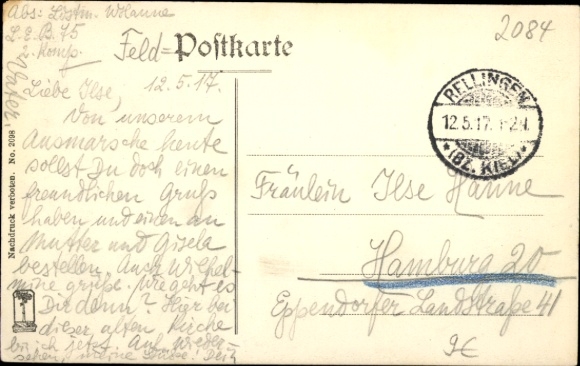 Abs: Lostm. Wolanne
L. E. B. 75
2. Komp.
Feld= Postkarte
2084
Liebe Ilse, 12.5.17.
Von unserem
Ausmarsche heute
sollst Du doch einen
freundlichen Gruß
haben und einen an
Mutter und Gisela
bestellen. Auch Wilhel-
mine grüße. Wie geht es
Dir denn? Hier bei
dieser alten Kirche
bin ich jetzt. Auf Wieder-
sehen, meine Liebe! Dein
Vater.
RELLINGEN
12.5.17. 1-2N.
*(BZ. KIEL)*
Fräulein Ilse Hanne
Hamburg 20
Eppendorfer Landstraße 41
9€
Nachdruck verboten. No. 2098